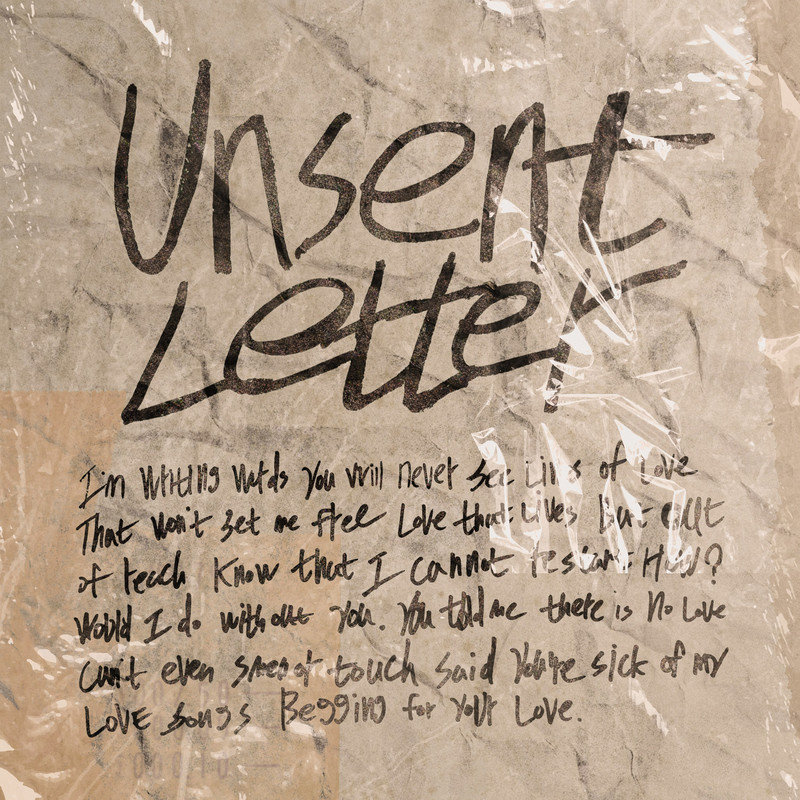 Unsent
Letter
I'm writing words you will never see Lines of Love
That won't set me free Love that Lives But out
of reach Know that I cannot restart How?
Would I do without you. You told me there is No Love
can't even smell or touch said you're sick of my
LOVE songs Begging for your Love.